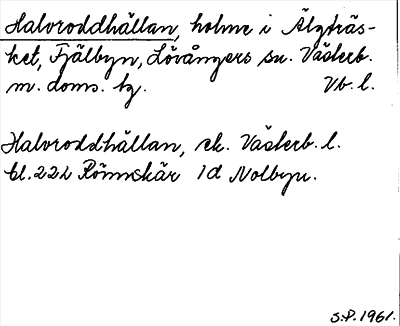 Halvroddhällan, holme i Älgträs-
ket, Fjälbyn, Lövångers sn. Västerb.
m. doms. tg. Vb. l.
Halvroddhällan, ek. Västerb. l.
bl. 22L Rönnskär 1d Nolbyn.
S.P. 1961.